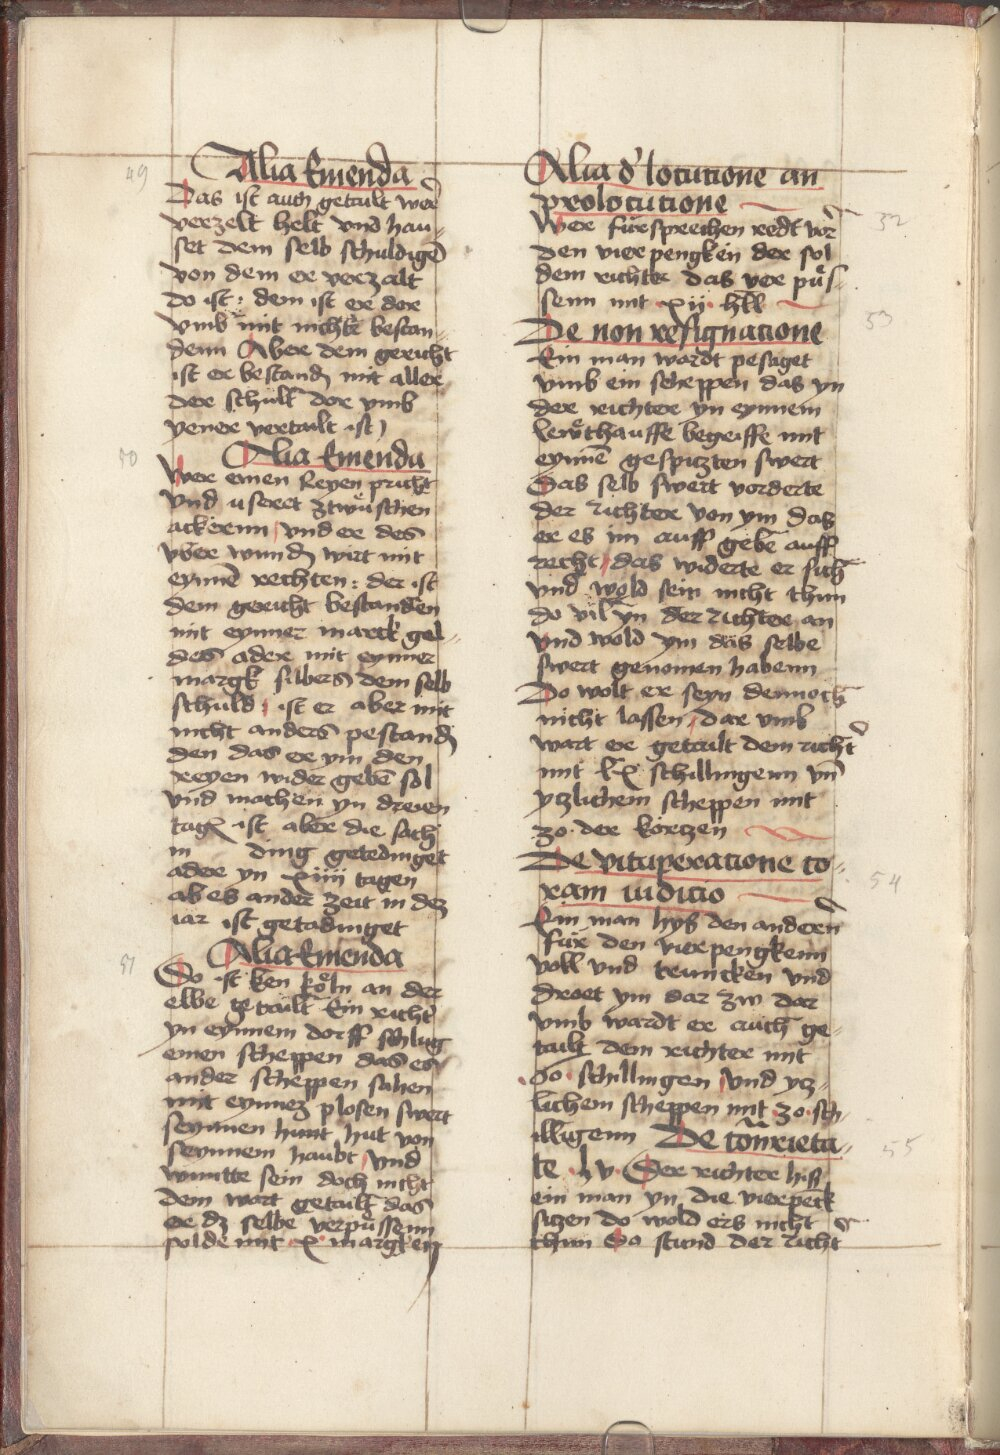 49
Alia Emenda
Das ist auch getailt wer
verzelt helt vnd hau-
set dem selb schuldigē
von dem er verzalt
do ist : dem ist er dor
vmb mit nichte bestan-
denn Aber dem gericht
ist er bestand mit aller
der schult dor vmb
yener vertailt ist
50
Alia Emenda
Wer einen Reyen pricht
vnd usreet ztwuͤschen
ackerenn vnd er des
vber wund wirt mit
eynnē rechten : der ist
dem gericht bestanden
mit eynner marck gel-
des ader mit eynner
margk silbers dem selb
schuld ist er aber mit
nicht anders pestand
den das er ym den
reyen wider gebē sol
vnd machen yn dreien
tagē ist aber die sach
in ding getedinget
ader yn xiiii tagen
ab es ander zeit in dez
iar ist getadinget
51
Alia Emenda
Do ist ken koͤln an der
elbe getailt Ein richt
yn eynnem dorff schlug
einen scheppen das es
ander scheppen sahen
mit eynnez plosen swert
seynnen hunt hut von
seynnem haubt vnd
wuntte sein doch nicht
dem wart getailt das
er dz selbe verpuͤssenn
solde mit x margken
Alia d' locutione an
prolocutione
52
Wer fuͤrsprechen redt vor
den vier pengken der sol
dem richter das ver puͤs-
senn mit xii hll
De non resignatione
53
Ein man wardt pesaget
vmb ein scheppen das yn
der richter yn eynnem
lewthauffe begriffe mit
eynnē gespitzten swert
Das selb swert vorderte
der richter von ym das
er es im auff gebe auff
recht das widerte er sich
vnd wold sein nicht thun
do vil yn der richter an
vnd wold ym das selbe
swert genomen habenn
Do wolt er seyn dennoch
nicht lassen dar vmb
wart er getailt dem richt
mit lx schillingenn vn̄
ytzlichem scheppen mit
30 · der kortzen
De vituperatione co-
ram iudicio
54
Ein man hys den andern
fuͤr den vierpengkenn
voll vnd truncken vnd
droet ym dar zw dar
vmb wardt er auch ge-
tailt dem richter mit
· 60 · schillingen vnd ytz-
lichem scheppen mit · 30 · sch-
illigenn De contrieta-
55
te · lv · Der richter hiss
ein man yn die vierpenck
sitzen do wold ers nicht
thun Do stund der richt